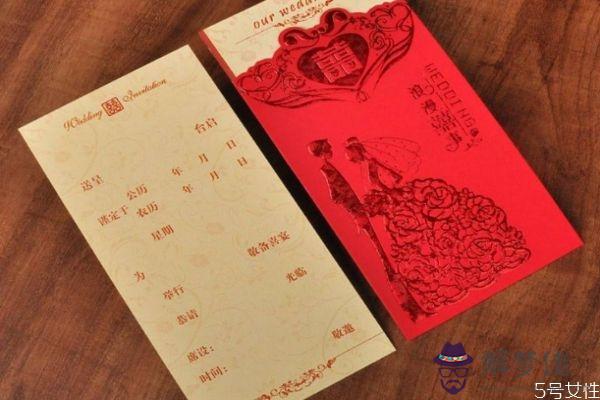 Wedding 囍 Invitation
台启
送呈
公历 年 月 日
谨定于 农历 年 月 日
星期
敬备喜宴
为
举行 光临
恭请
敬邀
席设：
时间：
our wedd
囍
WEDDING
浪漫
囍
解梦佳
5号女性